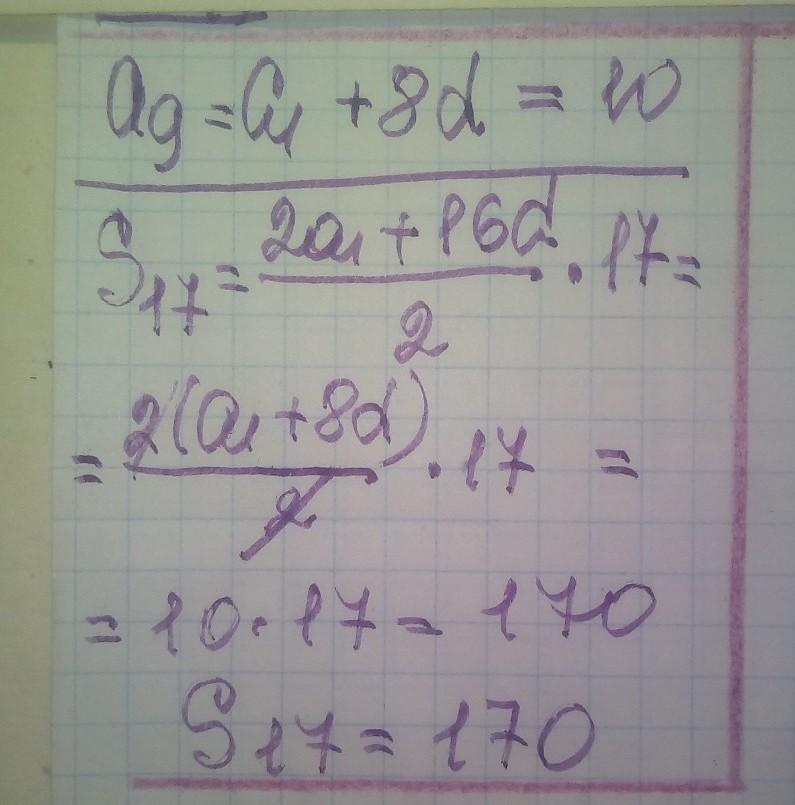 a₉ = a₁ + 8d = 10
S₁₇ = (2a₁ + 16d)/2 · 17 =
= 2(a₁ + 8d)/2 · 17 =
= 10 · 17 = 170
S₁₇ = 170